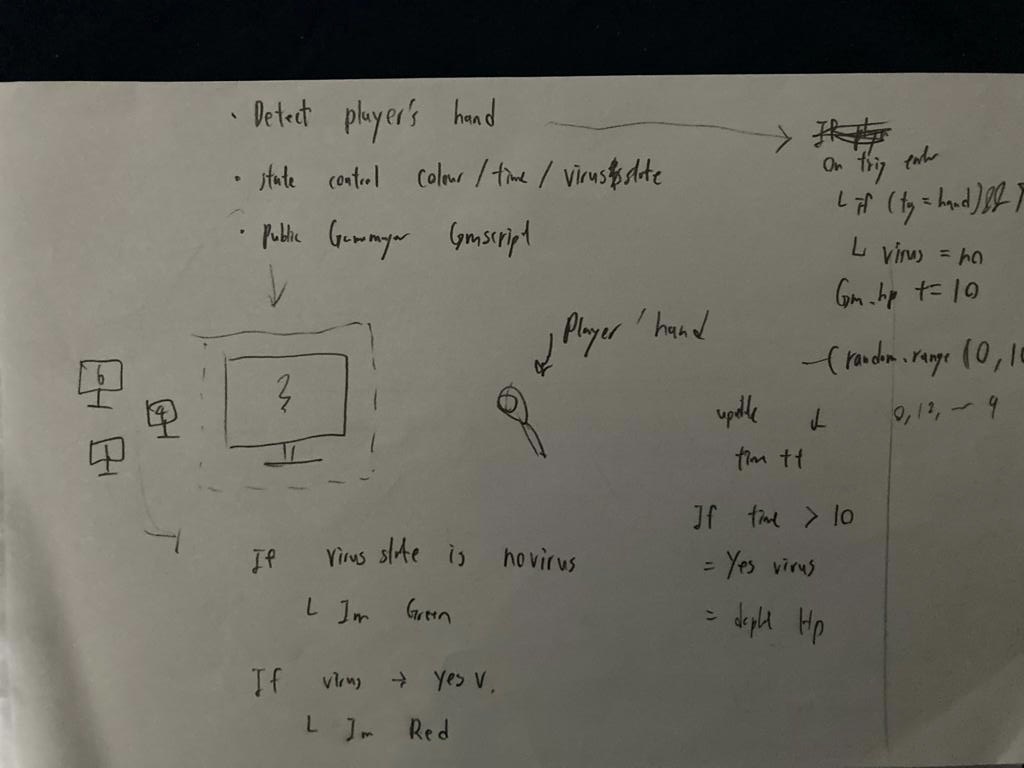 • Detect player's hand
• state control colour / time / virus state
• Public Gm script
On trig enter
L if (ty = hand) &&
L virus = no
Gm.hp += 10
(random.range (0, 10
update
time ++
0, 12, — 9
If time > 10
= Yes virus
= Hp
Player's hand
6
4
1
3
If virus state is no virus
L Im Green
If virus → yes v.
L Im Red